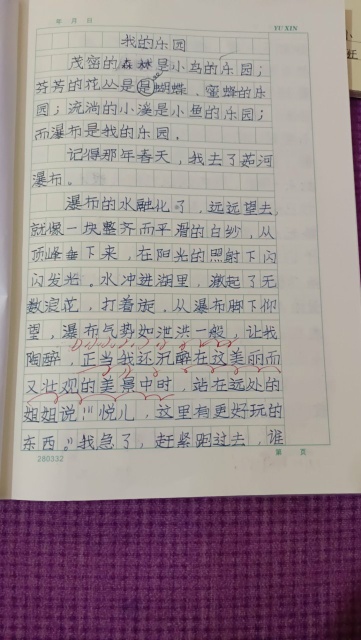 年 月 日
YU XIN
我的乐园
茂密的森林是小鸟的乐园；
芬芳的花丛是是蝴蝶、蜜蜂的乐
园；流淌的小溪是小鱼的乐园；
而瀑布是我的乐园．
记得那年春天，我去了茹河
瀑布。
瀑布的水融化了，远远望去，
就像一块整齐而平滑的白纱，从
顶峰垂下来，在阳光的照射下闪
闪发光。水冲进湖里，溅起了无
数浪花，打着漩，从瀑布脚下仰
望，瀑布气势如泄洪一般，让我
陶醉，正当我还沉醉在这美丽而
又壮观的美景中时，站在远处的
姐姐说："悦儿，这里有更好玩的
东西。"我急了，赶紧跑过去，谁
280332
第 页